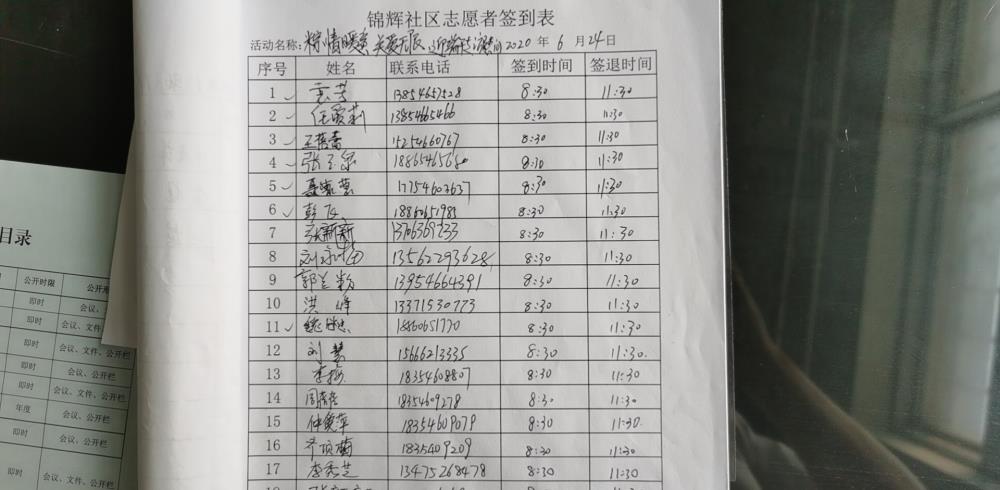 锦辉社区志愿者签到表
活动名称: 粽情暖意 关爱无限 时间2020 年 6 月 24 日
序号 姓名 联系电话 签到时间 签退时间
1 袁芳 13854657528 8:30 11:30
2 任爱莉 13854665466 8:30 11:30
3 王蓓蕾 15254660767 8:30 11:30
4 张玉泉 18865465680 8:30 11:30
5 17754603637 8:30 11:30
6 彭飞 18860651985 8:30 11:30
7 张新新 8:30 11:30
8 刘永团 13562293628 8:30 11:30
9 郭兰粉 13954664391 8:30 11:30
10 洪峰 13371530773 8:30 11:30
11 18860651770 8:30 11:30
12 刘慧 15666213335 8:30 11:30.
13 李振 18354608807 8:30 11:30
14 18354609278 8:30 11:30
15 仲爱萍 18354609079 8:30 11:30.
16 齐顶菊 1835409209 8:30 11:30
17 李秀芝 13475268478 8:30 11:30
目录
公开时限 公开形
即时 会议、
即时 会议、文件、公开栏
即时 会议、文件、公开栏
即时 会议、公开栏
年度 会议、公开栏
即时 会议、公开栏
即时 会议、文件、公开栏